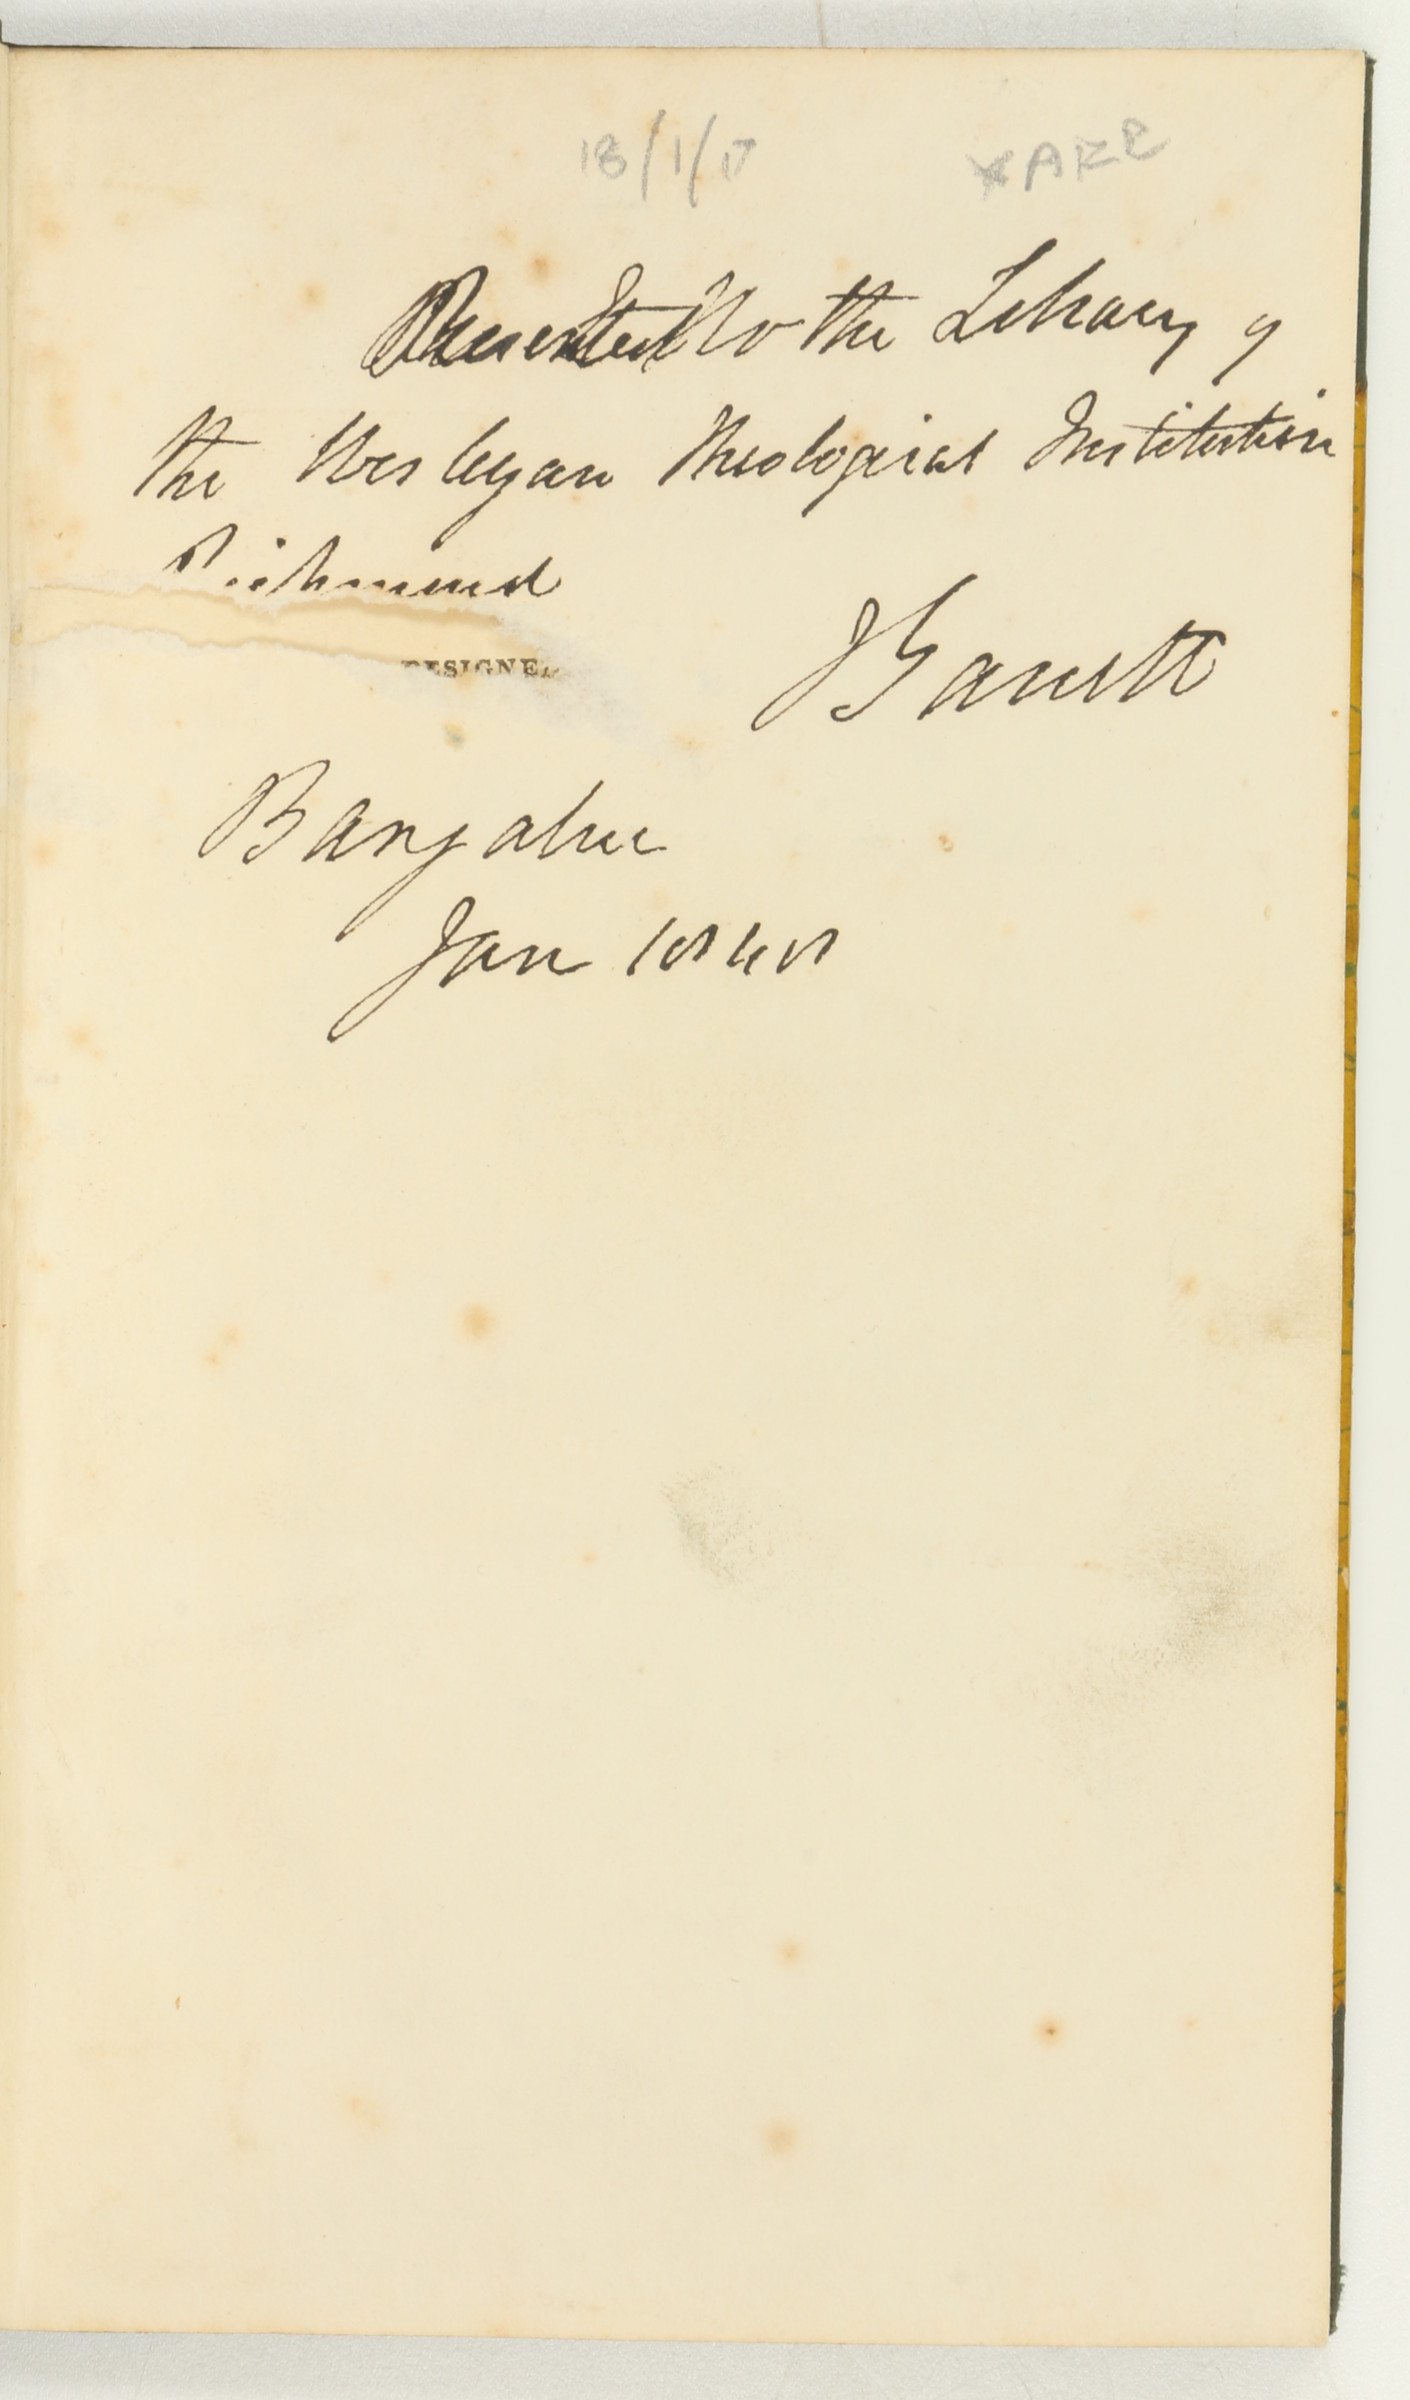 18/1/17
RARE
Presented to the Library of
the Wesleyan Theological Institution
Richmond
DESIGNE
J Garrett
Bangalore
Jan 1848